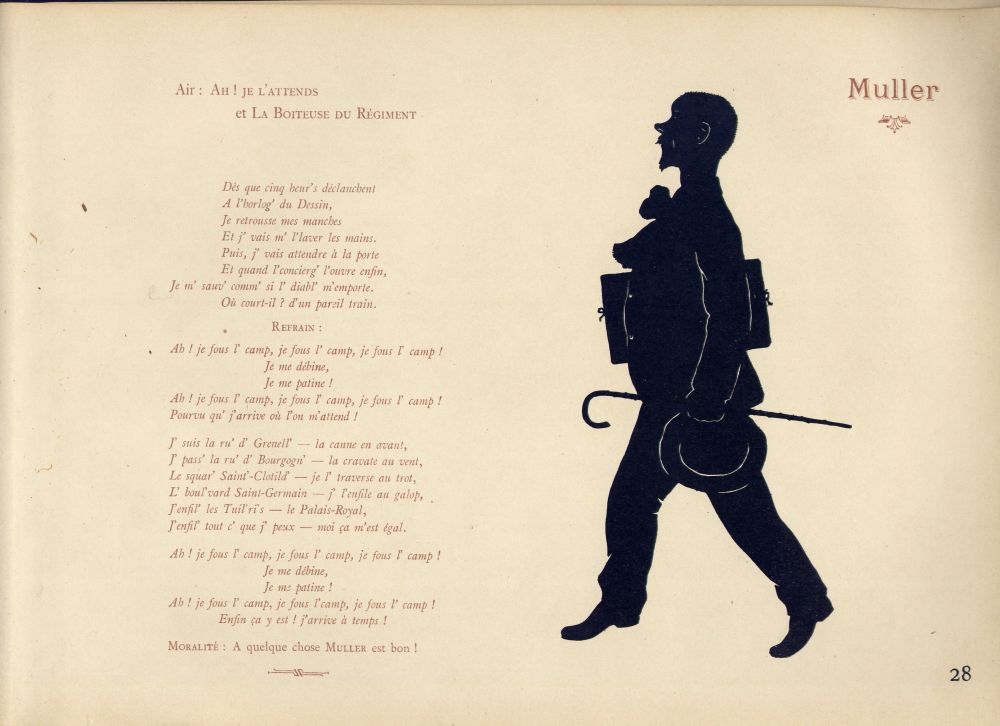 Air : Ah ! je l'attends
et La Boiteuse du Régiment
Muller
Dès que cinq heur's déclanchent
A l'horlog' du Dessin,
Je retrousse mes manches
Et j' vais m' l'laver les mains.
Puis, j' vais attendre à la porte
Et quand l'concierg' l'ouvre enfin,
Je m' sauv' comm' si l' diabl' m'emporte.
Où court-il ? d'un pareil train.
Refrain :
Ah ! je fous l' camp, je fous l' camp, je fous l' camp !
Je me débine,
Je me patine !
Ah ! je fous l' camp, je fous l' camp, je fous l' camp !
Pourvu qu' j'arrive où l'on m'attend !
J' suis la ru' d' Grenell' — la canne en avant,
J' pass' la ru' d' Bourgogn' — la cravate au vent,
Le squar' Saint'-Clotild' — je l' traverse au trot,
L' boul'vard Saint-Germain — j' l'enfile au galop,
J'enfil' les Tuil'ri's — le Palais-Royal,
J'enfil' tout c' que j' peux — moi ça m'est égal.
Ah ! je fous l' camp, je fous l' camp, je fous l' camp !
Je me débine,
Je me patine !
Ah ! je fous l' camp, je fous l'camp, je fous l' camp !
Enfin ça y est ! j'arrive à temps !
Moralité : A quelque chose Muller est bon !
28